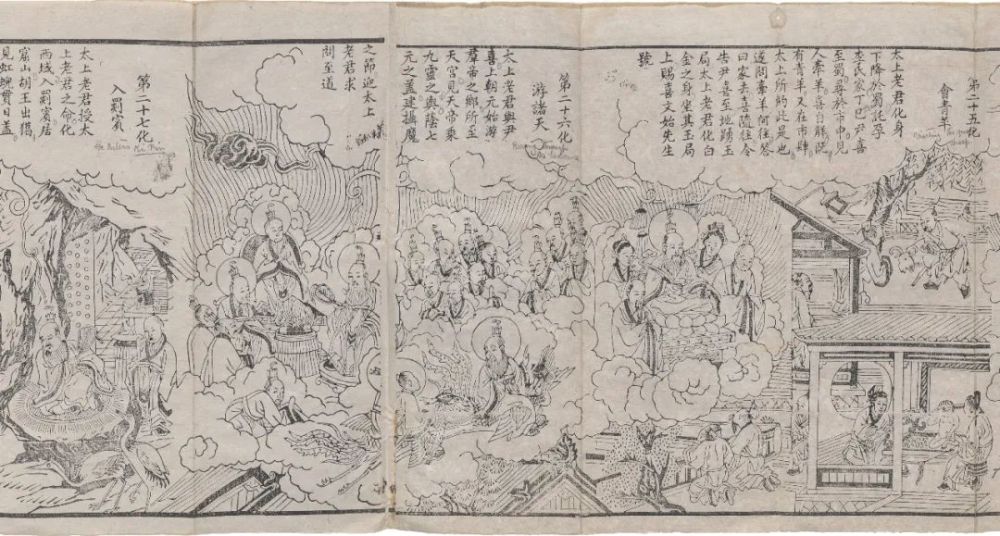 第二十五化
會青羊
太上老君化身
下降於蜀託孕
李氏家丁巳尹喜
至蜀尋於市中見
人牽羊喜自解既
有青羊又在市肆
太上所約此是也
遂問牽羊何往答
曰家去喜隨往令
告尹喜至地踴玉
局太上老君化白
金之身坐其玉局
上賜喜文始先生
號
第二十六化
游諸天
太上老君與尹
喜上朝元始游
羣帝之鄉所至
天宮見天帝乘
九靈之輿蔭七
元之蓋建攝魔
之節迎太上
老君求
問至道
第二十七化
入罽賓
He enters Ki Pin
太上老君授太
上老君之命化
西域入罽賓居
窟山胡王出獵
見虹蜺貫日蓋